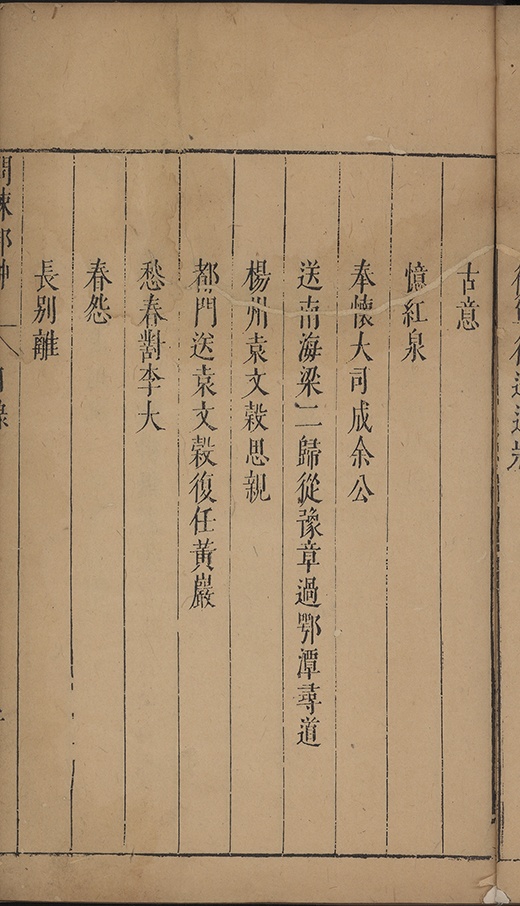 古意
憶紅泉
奉懷大司成余公
送南海梁二歸從豫章過鄂潭尋道
楊州袁文穀思親
都門送袁文穀復任黃巖
愁春對李大
春怨
長别離